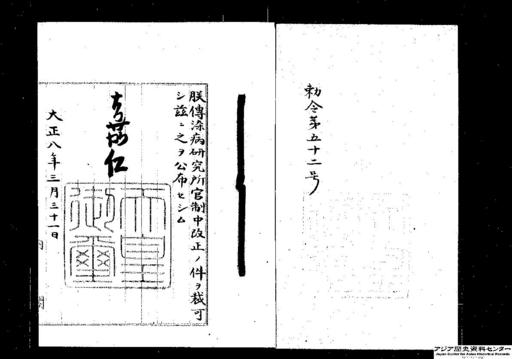 勅令第五十二号
朕傳染病研究所官制中改正ノ件ヲ裁可
シ茲ニ之ヲ公布セシム
嘉仁
天皇御璽
大正八年三月三十一日
内閣
アジア歴史資料センター
Japan Center for Asian Historical Records